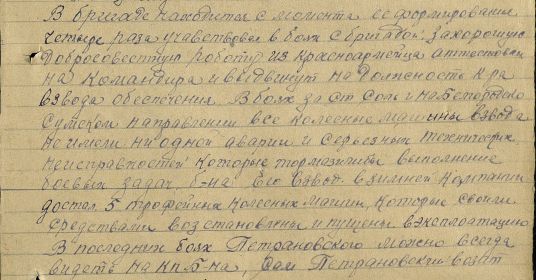 В бригаде находится с момента ее формирования
четыре раза учавствовал в боях с бригадой. За хорошую
добросовестную работу из красноармейца аттестован
на командира и выдвинут на должность к-ра
взвода обеспечения. В боях за ст Соль и на Белгородско
Сумском направлении все колесные машины взвода
не имели ни одной аварии и серьезных технических
неисправностей которые тормазили бы выполнение
боевых задач б-на. Его взвод в зимней кампании
достал 5 трофейных колесных машин, которые своими
средствами возстановлены и пущены в эксплоатацию
В последних боях Петрановского можно всегда
видеть на КП б-на, Сам Петрановский возит